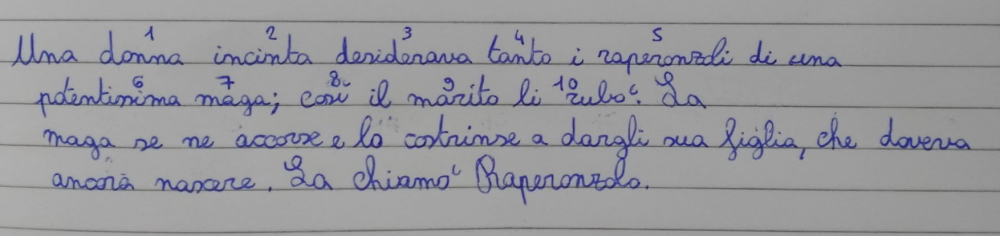 1 2 3 4 5
Una donna incinta desiderava tanto i raperonzoli di una
6 7 8 9 10
potentissima maga; così il marito li rubò. La
maga se ne accorse e lo costrinse a dargli sua figlia, che doveva
ancora nascere. La chiamò Raperonzolo.